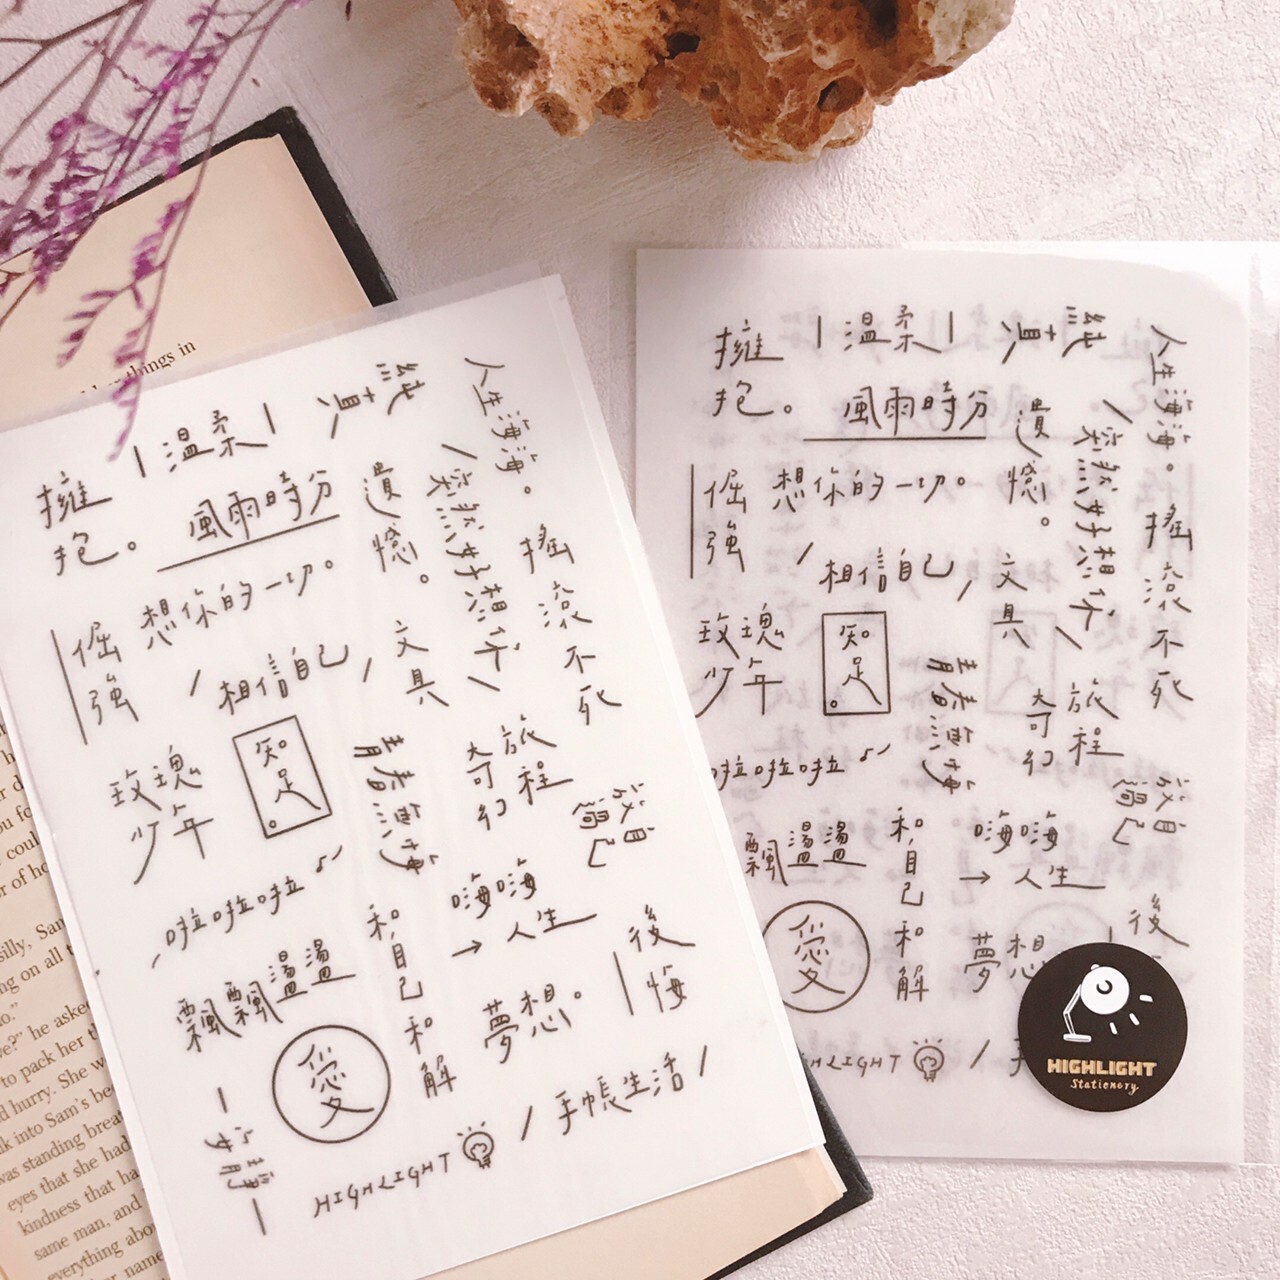 things in
擁抱。
|溫柔|
純真
人生海海。
風雨時分
遺憾。
/突然好想你/
倔強
想你的一切。
/相信自己/
文具
搖滾不死
玫瑰少年
知足。
青春無悔
奇幻旅程
放過自己
啦啦啦♪
飄飄盪盪
和自己和解
嗨嗨→人生
後悔
愛
夢想。
|安靜|
HIGHLIGHT
/手帳生活/
擁抱。
|溫柔|
純真
人生海海。
風雨時分
遺憾。
/突然好想你/
倔強
想你的一切。
/相信自己/
文具
搖滾不死
玫瑰少年
知足。
青春無悔
奇幻旅程
放過自己
啦啦啦♪
飄盪盪
和自己和解
嗨嗨→人生
後
愛
夢想
HLIGHT
HIGHLIGHT
Stationery
silly, Sam
ng on all t
he asked
to pack her t
d hurry. She w
lk into Sam's be
was standing brea
eyes that she had
kindness that ha
same man, and
everything abou
her name